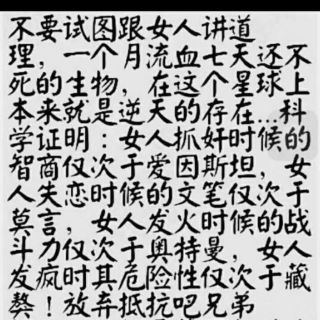 不要试图跟女人讲道
理，一个月流血七天还不
死的生物，在这个星球上
本来就是逆天的存在...科
学证明：女人抓奸时候的
智商仅次于爱因斯坦，女
人失恋时候的文笔仅次于
莫言，女人发火时候的战
斗力仅次于奥特曼，女人
发疯时其危险性仅次于藏
獒！放弃抵抗吧兄弟